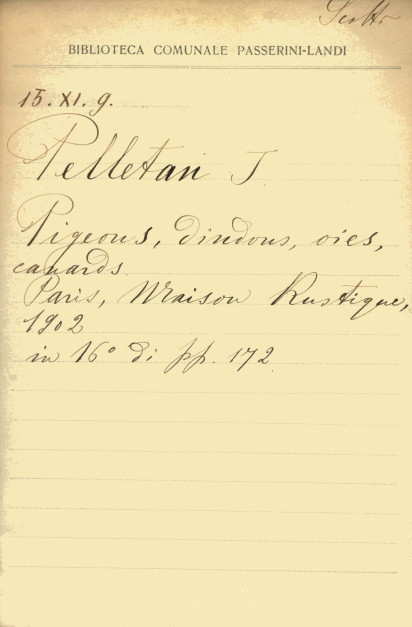 BIBLIOTECA COMUNALE PASSERINI-LANDI
15. XI. 9.
Pelletan J.
Pigeons, dindons, oies,
canards.
Paris, Maison Rustique,
1902
in 16° di pp. 172